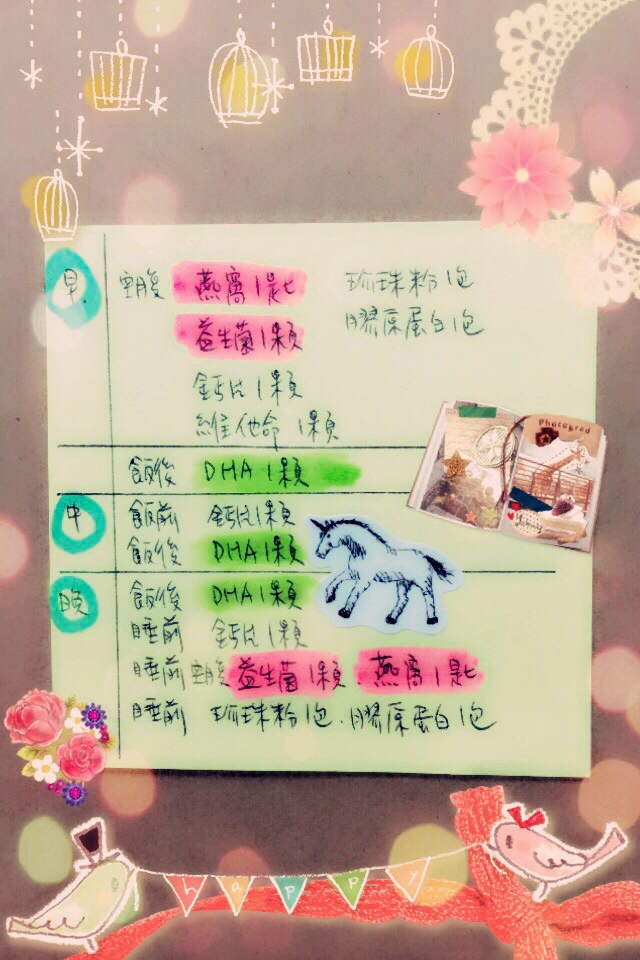 早 空腹 燕窩1匙 珍珠粉1包
益生菌1顆 膠原蛋白1包
鈣片1顆
維他命 1顆
飯後 DHA 1顆
中 飯前 鈣片1顆
飯後 DHA 1顆
晚 飯後 DHA 1顆
睡前 鈣片1顆
睡前 空腹 益生菌1顆.燕窩1匙
睡前 珍珠粉1包.膠原蛋白1包
happy